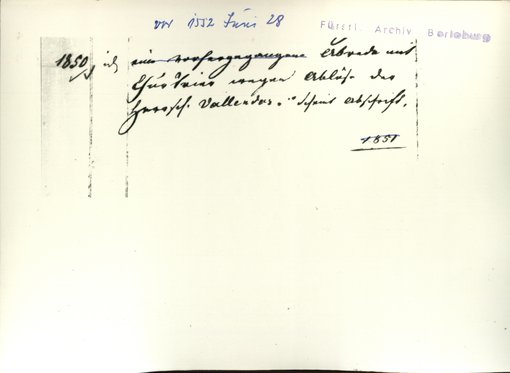 vor 1552 Juni 28
Fürstl. Archiv Berleburg
1850 id. eine vorhergegangene Abrede mit
Chur Trier wegen Ablöse der
Herrsch. Vallendar. scheint Abschrift.
1851